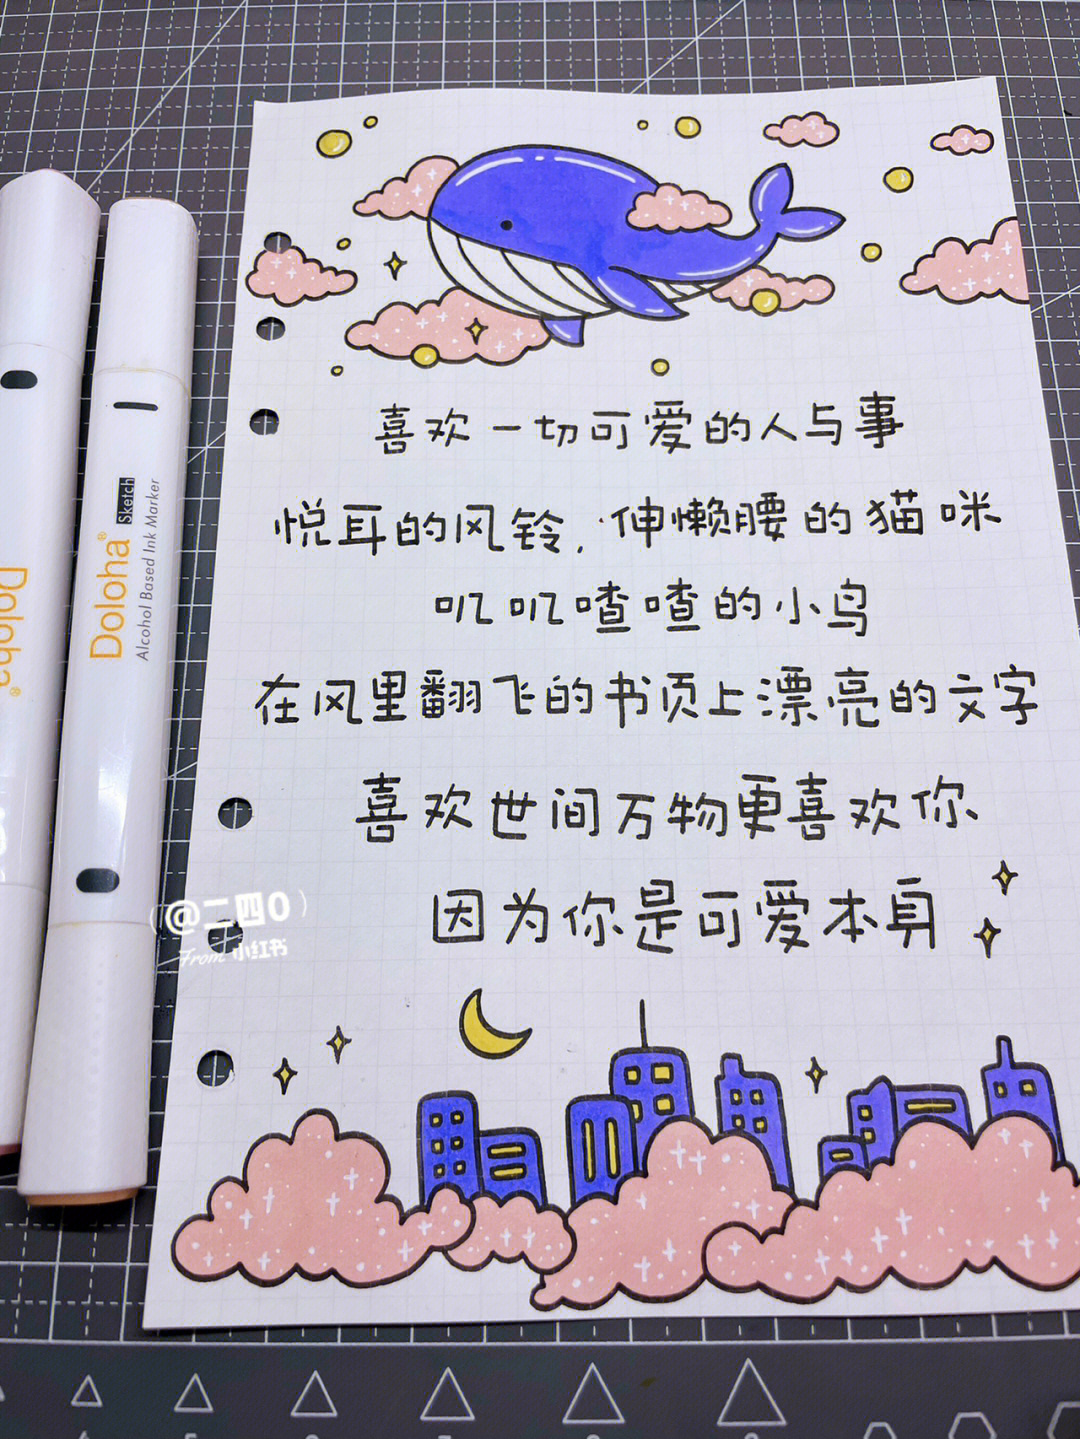 喜欢一切可爱的人与事
悦耳的风铃,伸懒腰的猫咪
叽叽喳喳的小鸟
在风里翻飞的书页上漂亮的文字
喜欢世间万物更喜欢你
因为你是可爱本身
@二四0
From 小红书
Doloha®
Sketch
Alcohol Based Ink Marker
Doloha®